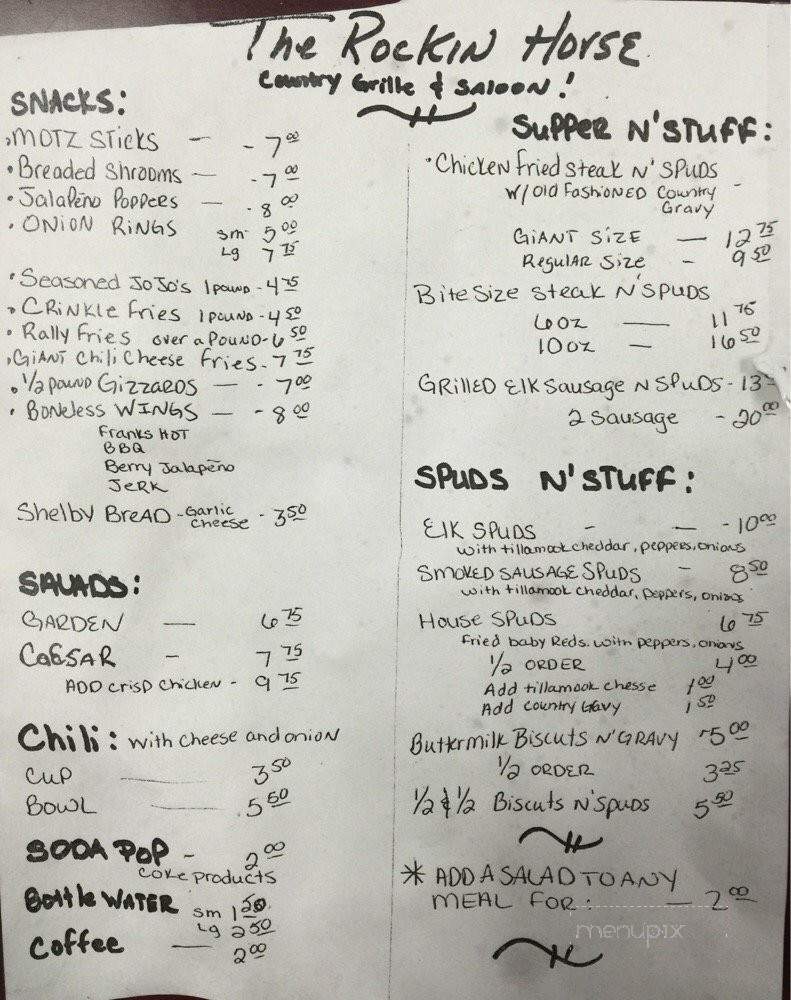 The Rockin Horse
Country Grille & Saloon!
SNACKS:
MOTZ STICKS — - 7⁰⁰
• Breaded Shrooms — - 7⁰⁰
• Jalapeño Poppers — - 8⁰⁰
• ONION RINGS sm 5⁰⁰
Lg 7⁷⁵
• Seasoned JoJo's 1 pound - 4⁷⁵
• CRinkle fries 1 POUND - 4⁵⁰
• Rally fries over a POUND - 6⁵⁰
• GIANT Chili Cheese fries - 7⁷⁵
• 1/2 pound Gizzards — - 7⁰⁰
• Boneless WINGS — - 8⁰⁰
Franks HOT
BBQ
Berry Jalapeño
JERK
Shelby BREAD - Garlic cheese - 3⁵⁰
SALADS:
GARDEN — 6⁷⁵
CaESAR - 7⁷⁵
ADD crisp chicken - 9⁷⁵
Chili: with cheese and onion
CUP — 3⁵⁰
BOWL — 5⁵⁰
SODA POP - 2⁰⁰
coke products
Bottle WATER sm 1⁵⁰
Lg 2⁵⁰
Coffee — 2⁰⁰
SUPPER N'STUFF:
• Chicken fried steak N' SPUDS
W/ Old Fashioned Country -
Gravy
GIANT SIZE — 12⁷⁵
Regular Size - 9⁵⁰
Bite Size Steak N'SPUDS
6oz — 11⁷⁵
10oz — 16⁵⁰
GRilled Elk Sausage N SPUDS - 13
2 Sausage - 20⁰⁰
SPUDS N'STUFF:
Elk SPUDS - — - 10⁰⁰
with tillamook cheddar, peppers, onions
SMOKED SAUSAGE SPUDS - 8⁵⁰
with tillamook cheddar, peppers, onions
House SPUDS 6⁷⁵
Fried baby Reds. with peppers, onions
1/2 ORDER 4⁰⁰
Add tillamook chesse 1⁰⁰
Add country Gavy 1⁵⁰
Buttermilk Biscuts N'GRAVY 5⁰⁰
1/2 ORDER 3²⁵
1/2 & 1/2 Biscuts N'spuds 5⁵⁰
* ADD A SALAD TO ANY
MEAL FOR: — 2⁰⁰
menupix